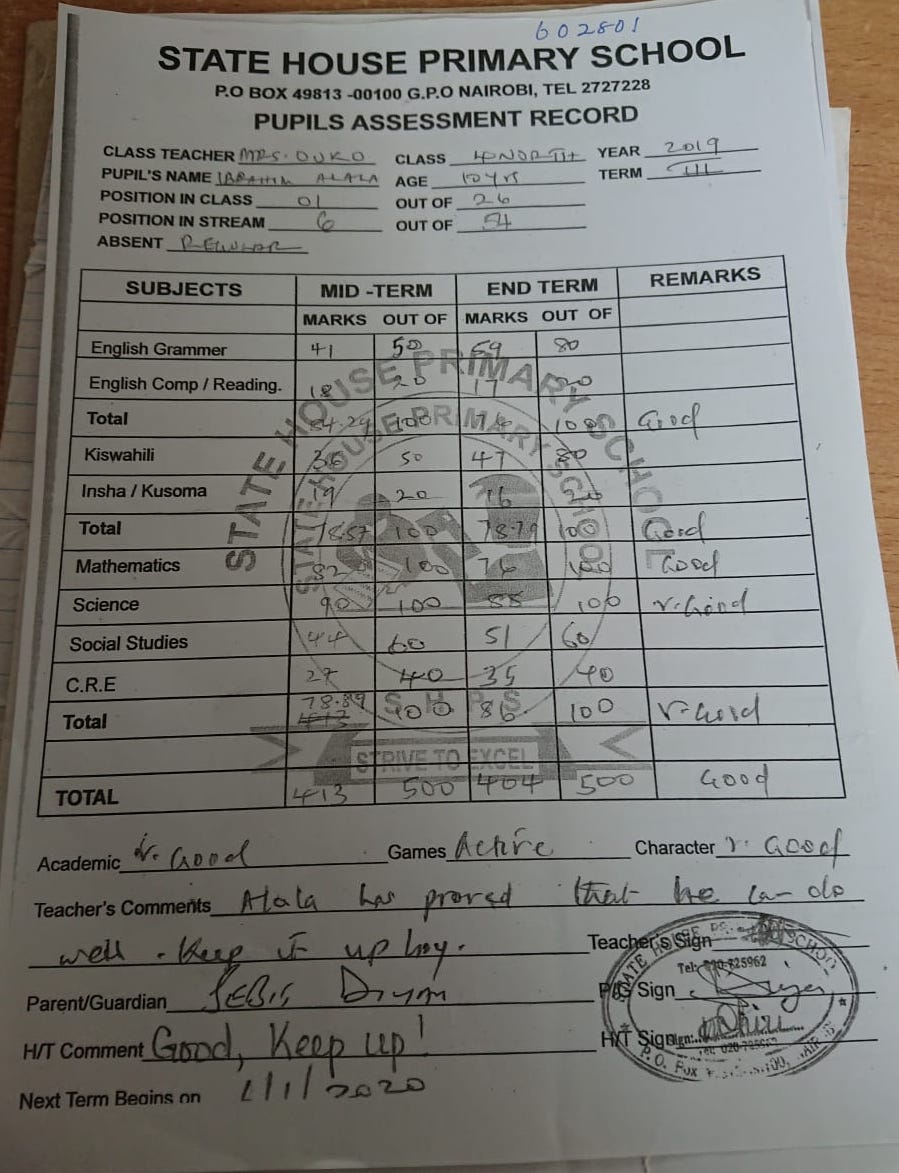 602801
STATE HOUSE PRIMARY SCHOOL
P.O BOX 49813 -00100 G.P.O NAIROBI, TEL 2727228
PUPILS ASSESSMENT RECORD
CLASS TEACHER MRS. OUKO CLASS 4 NORTH YEAR 2019
PUPIL'S NAME IBRAHIM ALALA AGE 10yrs TERM III
POSITION IN CLASS 01 OUT OF 26
POSITION IN STREAM 6 OUT OF 54
ABSENT REGULAR
SUBJECTS MID -TERM END TERM REMARKS
MARKS OUT OF MARKS OUT OF
English Grammer 41 50 59 80
English Comp / Reading. 18 20 17 20
Total 84.29 100 76 100 Good
Kiswahili 36 50 47 80
Insha / Kusoma 19 20 16 20
Total 78.57 100 78.79 100 Good
Mathematics 82 100 76 100 Good
Science 90 100 88 100 v.Good
Social Studies 44 60 51 60
C.R.E 27 40 35 40
Total 78.89 100 86. 100 v.Good
TOTAL 413 500 404 500 Good
STATE HOUSE PRIMARY SCHOOL
STATE HOUSE PRIMARY SCHOOL
S H P S
STRIVE TO EXCEL
Academic v. Good Games Active Character v. Good
Teacher's Comments Alala has proved that he can do
well. Keep it up boy. Teacher's Sign
Parent/Guardian Sign
H/T Comment Good, Keep up! H/T Sign
Next Term Begins on 2020